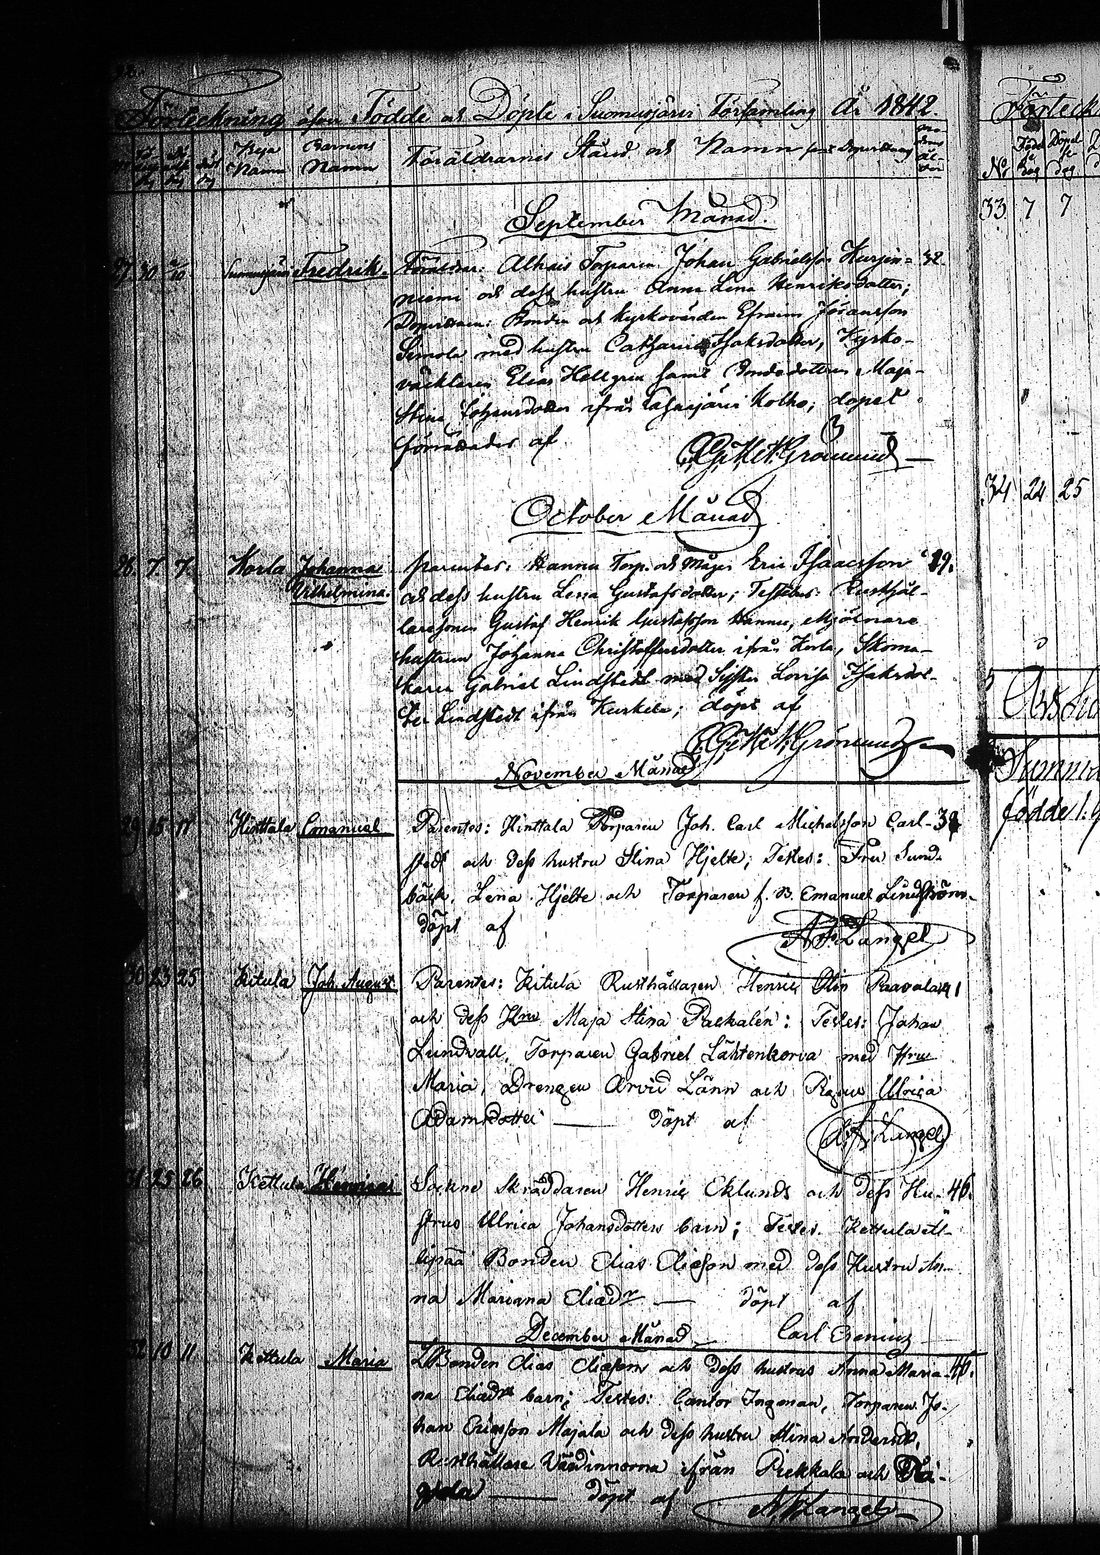 Förteckning öfver Födde och Döpte i Suomusjärvi Församling År 1842.
Bya Namn Barnens Namn Föräldrarnes Stånd och Namn
September Månad.
27 30 2/10 Suomusjärvi Fredrik. Föräldrar: Alhais Torparen Johan Gabrielsson Harjun- 32.
niemi och dess hustru Anna Lena Henriksdotter;
Bonden och Kyrkovärden Efraim Johansson
Semola med hustru Catharina Isaksdotter, Kyrko-
väcktaren Elias Hellgren samt Bondedottren Maja
Stina Johansdotter ifrån Kolho; döpet
förrättades af
Grönlund
October Månad
28 7 7 Korla Johanna Wilhelmina. parentes: Hannu Torp. och Måg Eric Isaacsson 29.
och dess hustru Lena Gustafsdotter; Testes: Rusthål-
laresonen Gustaf Henrik Gustafsson Hannu, Mjölnare
hustrun Johanna Christoffersdotter ifrån Korla, Skoma-
karen Gabriel Lindstedt med Syster Lovisa Isaksdot-
ter Lindstedt ifrån Kurkela; döpt af
Grönlund
November Månad
29 15 17 Hinttala Emanuel Parentes: Hinttala Torparen Joh. Carl Michelsson Carl-
stedt och dess hustru Stina Hjelte; Testes: Fru Sund-
bäck, Lena Hjelte och Torparen f. B. Emanuel Lindström
döpt af
A F Zangel
30 23 25 Kitula Joh. August Parentes: Kitula Rusthållaren Henric Olin Paavola 41
och dess Hru Maja Stina Packalén: Testes: Johan
Lundvall, Torparen Gabriel Lähtenkorva med Hru
Maria, Drengen Arvid Länn och Pigan Ulrica
Adamsdotter — döpt af
A F Zangel
31 25 26 Kettula Sockne Skräddaren Henric Eklunds och dess Hu- 46.
strus Ulrica Johansdotters barn; Testes. Kettula Al-
lipää Bonden Elias Eliasson med dess Hustru An-
na Mariana Eliaedr — döpt af
Carl Erenius
December Månad
32 10 11 Kettula Maria Bonden Elias Eliassons och dess hustrus Anna Maria- 46.
na Eliaedrs barn; Testes: Cantor Ingman, Torparen Jo-
han Ericsson Majala och dess hustru Stina Andersdr,
Rusthållare Värdinnorna ifrån Piekkala och
— döpt af A F Zangel
Forteck
No
33 7 7
34 24 25
Summa
födde